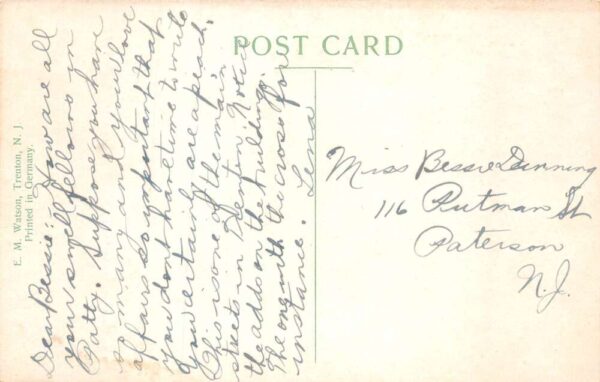 POST CARD
E. M. Watson, Trenton, N. J.
Printed in Germany.
Dear Bessie:- How are all
your swell fellows in
Patty. Suppose you have
so many and your love
affairs so important that
you dont have time to write
you certainly are a peach.
This is one of the main
streets in Trenton. Notice
the adds on the building.
The one with the cross for
instance. Lena
Miss Bessie Dunning
116 Putman St
Paterson
N.J.